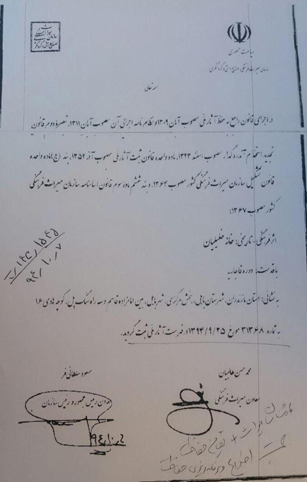 ریاست جمهوری
سازمان میراث فرهنگی، صنایع دستی و گردشگری
در اجرای قانون راجع به حفظ آثار ملی مصوب آبان ۱۳۰۹ و نظامنامه اجرایی آن مصوب آبان ۱۳۱۱، تبصره دوم قانون
تجدید استخدام آندره گدار مصوب اسفند ۱۳۴۴، ماده واحده قانون ثبت آثار ملی مصوب آذر ۱۳۵۲، بند (ج) ماده واحده
قانون تشکیل سازمان میراث فرهنگی کشور مصوب ۱۳۶۴ و بند ششم ماده سوم قانون اساسنامه سازمان میراث فرهنگی
کشور مصوب ۱۳۶۷:
اثر فرهنگی، تاریخی: خانه خلیلیان
با قدمت: دوره قاجاریه
به نشانی: استان مازندران، شهرستان بابل، بخش مرکزی، شهر بابل،
به شماره ۳۱۳۶۸ مورخ ۱۳۹۴/۹/۲۵ در فهرست آثار ملی ثبت گردید.
محمد حسن طالبیان
معاون میراث فرهنگی
مسعود سلطانی فر
معاون رئیس جمهور و رئیس سازمان